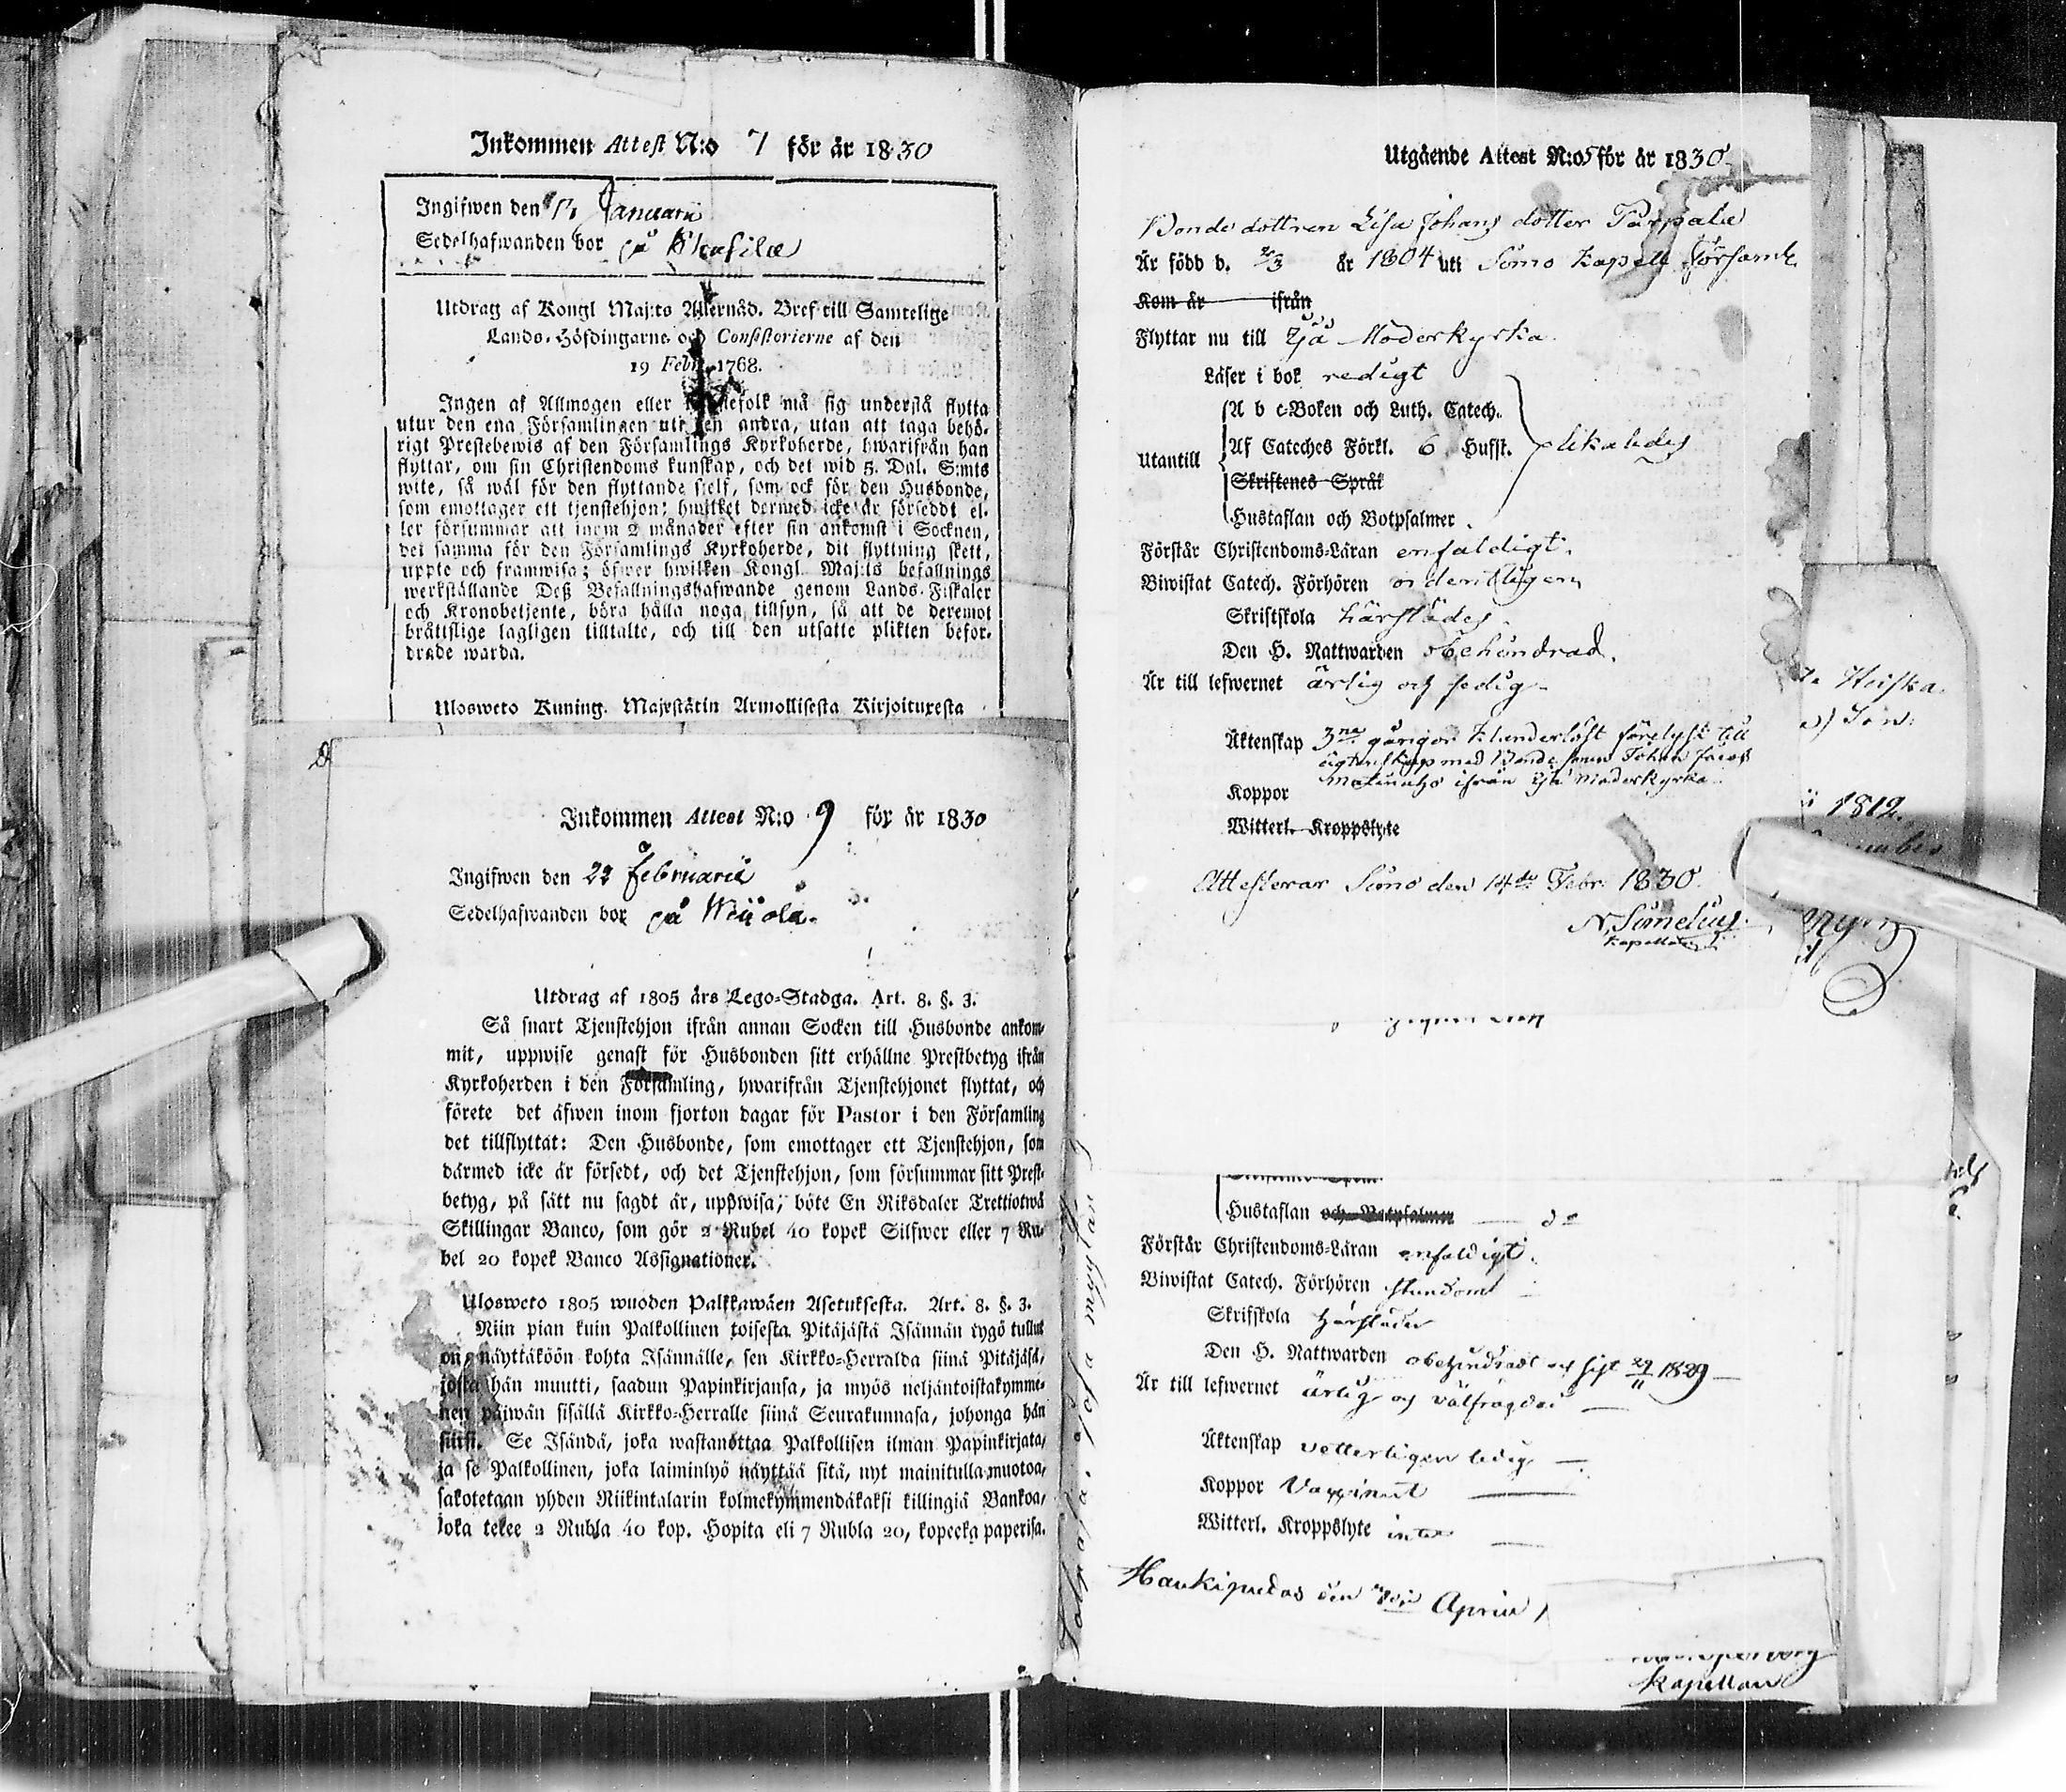 Inkommen Attest N:o 7 för år 1830
Ingifwen den 17 Januarii
Sedelhafwanden bor på
Utdrag af Kongl Maj:ts Allernåd. Bref till Samtelige
Lands-Höfdingarne och Consistorierne af den
19 Febr. 1768.
Ingen af Allmogen eller må sig understå flytta
utur den ena Församlingen uti den andra, utan att taga behö-
rigt Prestebewis af den Församlings Kyrkoherde, hwarifrån han
flyttar, om sin Christendoms kunskap, och det wid 5. Dal. S:mts
wite, så wäl för den flyttande sjelf, som ock för den Husbonde,
som emottager ett tjenstehjon; hwilket dermed icke är förseddt el-
ler försummar att inom 2 månader efter sin ankomst i Socknen,
det samma för den Församlings Kyrkoherde, dit flyttning skett,
uppte och framwisa; öfwer hwilken Kongl. Maj:ts befallnings
werkställande Deß Befallningshafwande genom Lands-Fiskaler
och Kronobetjente, böra hålla noga tillsyn, så att de deremot
bråttslige lagligen tilltalte, och till den utsatte plikten befor-
drade warda.
Ulosweto Kuning. Majestätin Armollisesta Kirjoituxesta
Inkommen Attest N:o 9 för år 1830
Ingifwen den 22 Februarii
Sedelhafwanden bor på Wiiola.
Utdrag af 1805 års Lego-Stadga. Art. 8. §. 3.
Så snart Tjenstehjon ifrån annan Socken till Husbonde ankom-
mit, uppwise genast för Husbonden sitt erhållne Prestbetyg ifrån
Kyrkoherden i den Församling, hwarifrån Tjenstehjonet flyttat, och
förete det äfwen inom fjorton dagar för Pastor i den Församling
det tillflyttat: Den Husbonde, som emottager ett Tjenstehjon, som
därmed icke är försedt, och det Tjenstehjon, som försummar sitt Prest-
betyg, på sätt nu sagdt är, uppwisa, böte En Riksdaler Trettiotwå
Skillingar Banco, som gör 2 Rubel 40 kopek Silfwer eller 7 Ru-
bel 20 kopek Banco Assignationer.
Ulosweto 1805 wuoden Palkkawäen Asetuksesta. Art. 8. §. 3.
Niin pian kuin Palkollinen toisesta Pitäjästä Isännän tygö tullut
on, näyttäköön kohta Isännälle, sen Kirkko-Herralda siinä Pitäjäsä,
josta hän muutti, saadun Papinkirjansa, ja myös neljäntoistakymme-
nen päiwän sisällä Kirkko-Herralle siinä Seurakunnasa, johonga hän
siirsi. Se Isändä, joka wastanottaa Palkollisen ilman Papinkirjata,
ja se Palkollinen, joka laiminlyö näyttää sitä, nyt mainitulla muotoa,
sakotetaan yhden Riikintalarin kolmekymmendäkaksi killingiä Bankoa,
joka tekee 2 Rubla 40 kop. Hopita eli 7 Rubla 20, kopecka paperisa.
Utgående Attest N:o 5 för år 1830
Bonde dottren Lisa Johans dotter
Är född d. år 1804 uti Simo Kapell Församl.
Kom år ifrån
Flyttar nu till Ijå Moderkyrka
Läser i bok redigt
A b c-Boken och Luth. Catech.
Utantill Af Cateches Förkl. 6 Hufst. likaledes
Skriftenes Språk
Hustaflan och Botpsalmer
Förstår Christendoms-Läran enfaldigt.
Biwistat Catech. Förhören ordentligen
Skriftskola härstädes.
Den H. Nattwarden obehindrad.
Är till lefwernet ärlig och sedig
Äktenskap 3ne gångor förelyst till
ägtenskap med Bonde sonen Johan
ifrån Ijå Moderkyrka.
Koppor
Witterl. Kroppslyte
Attesterar Simo den 14de Febr. 1830.
N. Simelius
Kapellan
1812.
Hustaflan och Botpsalmer do
Förstår Christendoms-Läran enfaldigt.
Biwistat Catech. Förhören stundom
Skrifskola härstädes
Den H. Nattwarden obehindradt och sist 29/11 1829
Är till lefwernet ärlig och välfrägdad
Äktenskap vetterligen ledig
Koppor Vaccinerat
Witterl. Kroppslyte intet
Haukipudas den Aprill
Kapellan